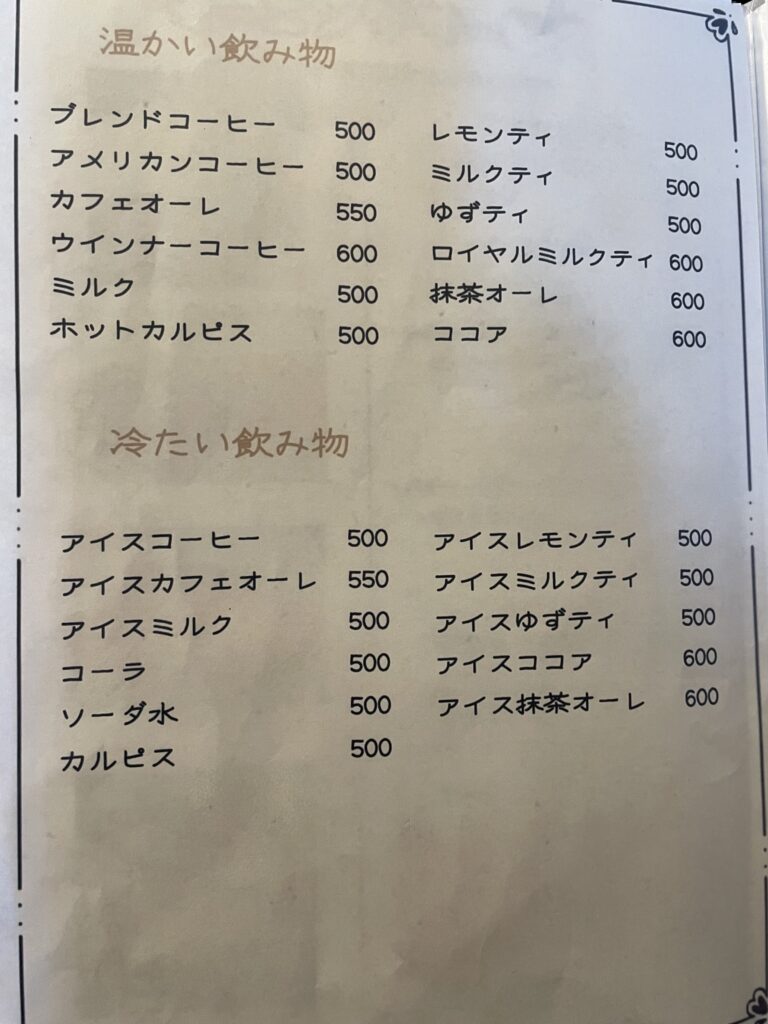 温かい飲み物
ブレンドコーヒー 500
アメリカンコーヒー 500
カフェオーレ 550
ウインナーコーヒー 600
ミルク 500
ホットカルピス 500
レモンティ 500
ミルクティ 500
ゆずティ 500
ロイヤルミルクティ 600
抹茶オーレ 600
ココア 600
冷たい飲み物
アイスコーヒー 500
アイスカフェオーレ 550
アイスミルク 500
コーラ 500
ソーダ水 500
カルピス 500
アイスレモンティ 500
アイスミルクティ 500
アイスゆずティ 500
アイスココア 600
アイス抹茶オーレ 600